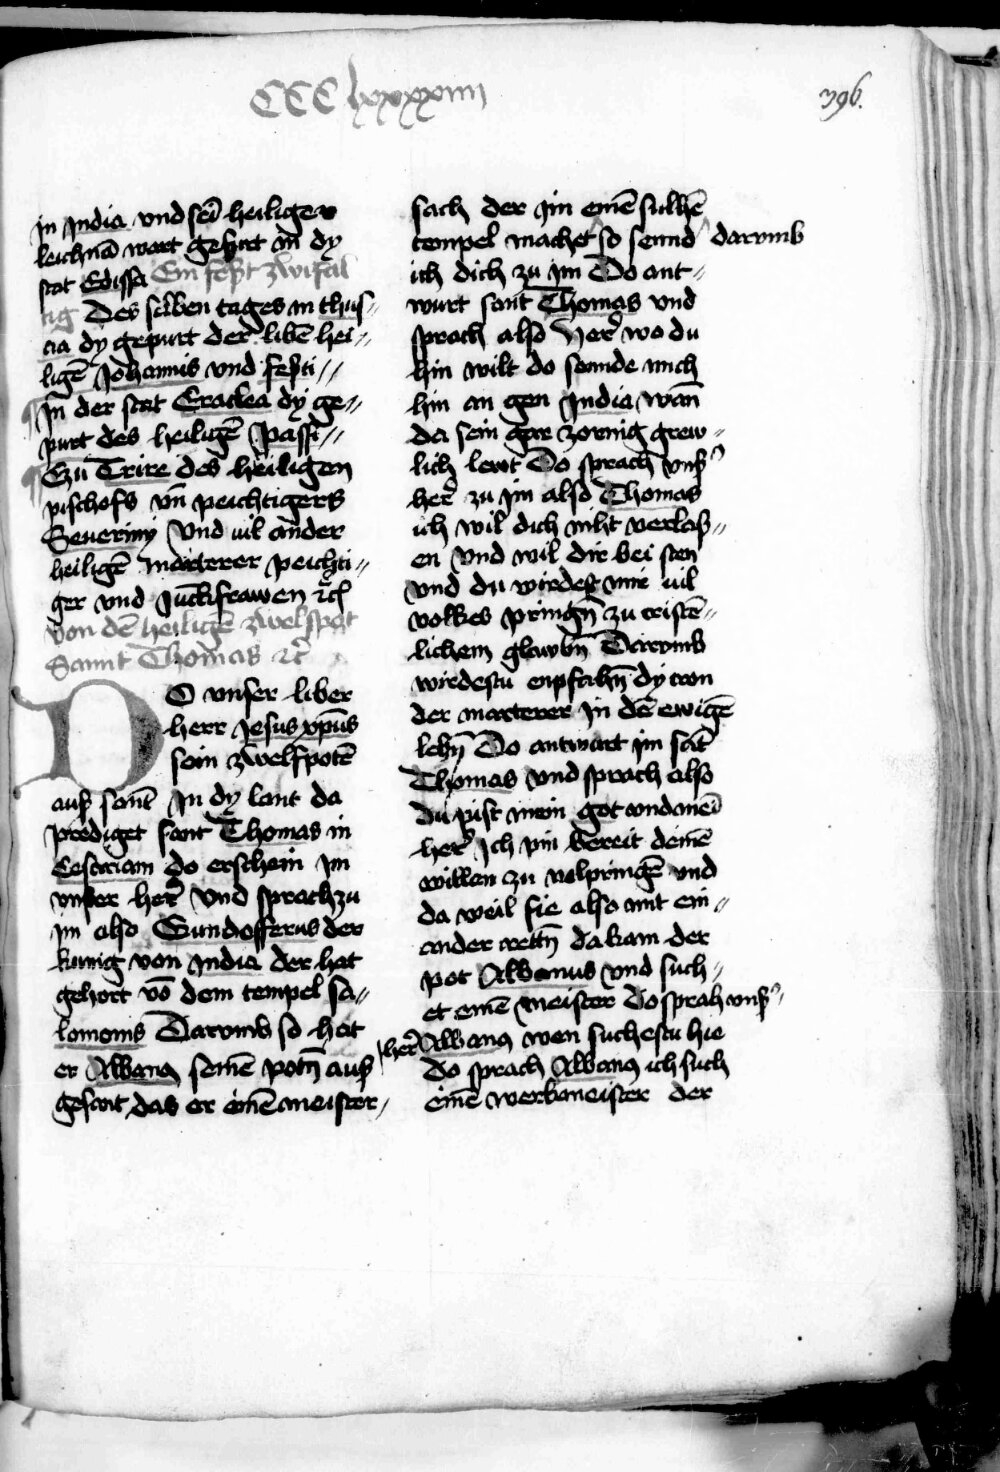 CCC lxxxxiiii
396.
in India vnd sei͂ heiliger
leichnā wart gefurt in dy
stat Edissa Ein fest zwifal
tig Des selben tages in thus-
cia dy gepurt der libē hei-
ligē Johannis vnd festi
In der stat Eraclea dy ge-
purt des heiligē passi
Zu Trire des heiligen
pischofs vn̄ peichtigers
Seueriny Vnd uil ander
heiligē marterer peichti-
ger vnd Juckfrawen ꝛc
Von dē heiligē zwelfpot
Sannt Thomas ꝛc
DO vnser liber
herr Jesus xp̄us
sein zwelfpotē
auß sant In dy lant da
prediget sant Thomas in
Cesariam do erschein im
vnser her̄ Vnd sprach zu
im also Gundofferus der
kunig von India der hat
gehort vō dem tempel sa-
lomonis Darvmb so hat
er Albanū seinē potn̄ auß
gesant das er einē meister
sach der im einē sulhē
tempel machet so sennd darvmb
ich dich zu im Do ant-
wurt sant Thomas vnd
sprach also Her̄ wo du
hin wilt do sennde mich
hin an gen India wan̄
da sein gar zornig grew-
lich lewt Do sprach vnß
her̄ zu im also Thomas
ich wil dich niht verlaß-
en Vnd wil dir bei sten
Vnd du wirdest mir uil
volkes pringn̄ zu cristē-
lichem glawbn̄ Darvmb
wirdestu enpfahn̄ dy cron
der marterer In dē ewigē
lebn̄ Do antwurt im sāt
Thomas Vnd sprach also
du pist mein got vnd mei͂
her̄ Ich pin bereit deinē
willen zu volpringē vnd
da weil sie also mit ein-
ander rettn̄ da kam der
pot Albanus vnd such-
et einē meister do sprah vnß
her̄ Albanū wen suchestu hie
do sprach Albanū ich such
einē werkmeister der